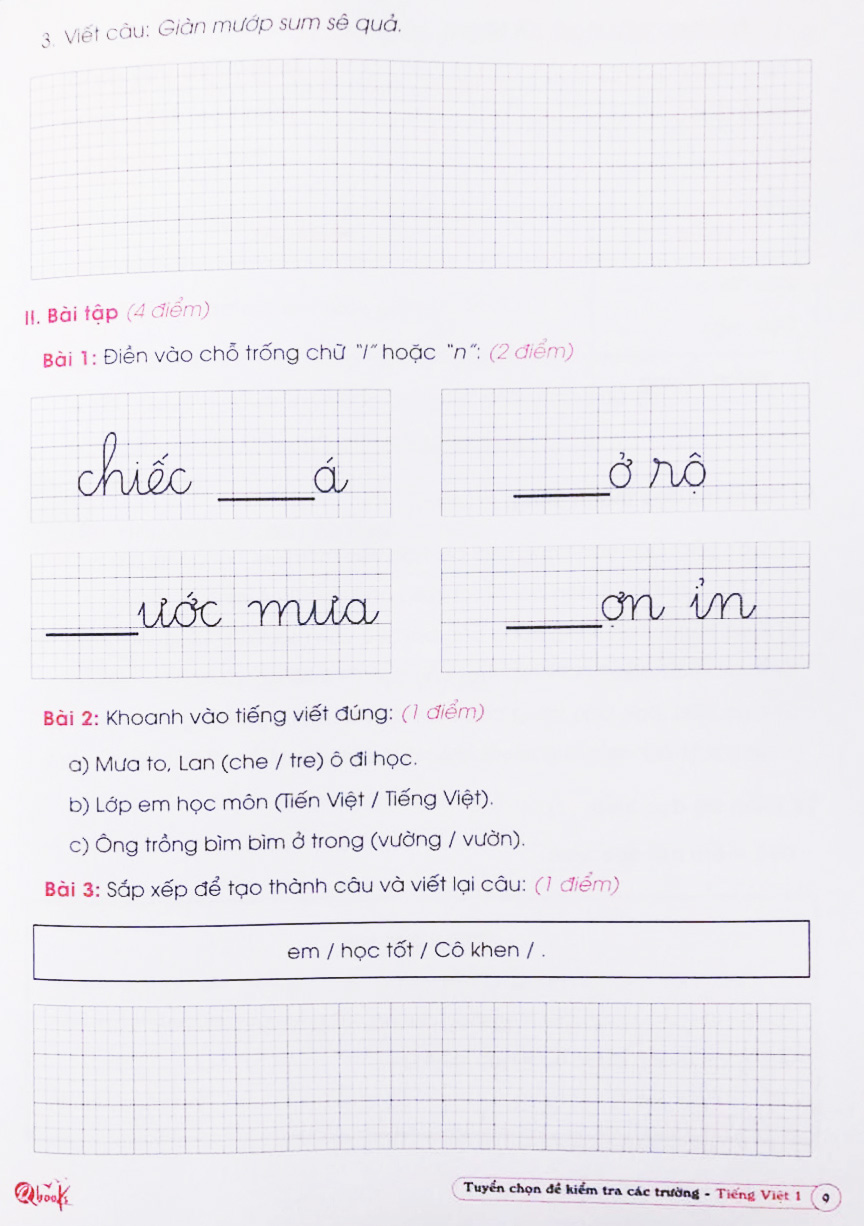 3. Viết câu: Giàn mướp sum sê quả.
II. Bài tập (4 điểm)
Bài 1: Điền vào chỗ trống chữ "l" hoặc "n": (2 điểm)
chiếc ____á
____ở rộ
____ước mưa
____ợn ỉn
Bài 2: Khoanh vào tiếng viết đúng: (1 điểm)
a) Mưa to, Lan (che / tre) ô đi học.
b) Lớp em học môn (Tiến Việt / Tiếng Việt).
c) Ông trồng bìm bìm ở trong (vường / vườn).
Bài 3: Sắp xếp để tạo thành câu và viết lại câu: (1 điểm)
em / học tốt / Cô khen / .
Qbooks
Tuyển chọn đề kiểm tra các trường - Tiếng Việt 1
9